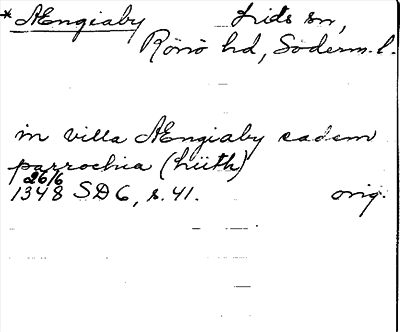 * Ængiaby Lids sn,
Rönö hd, Söderm. l.
in villa Ængiaby eadem
parrochia (Liith)
26/6
1348 SD 6, s. 41. orig.